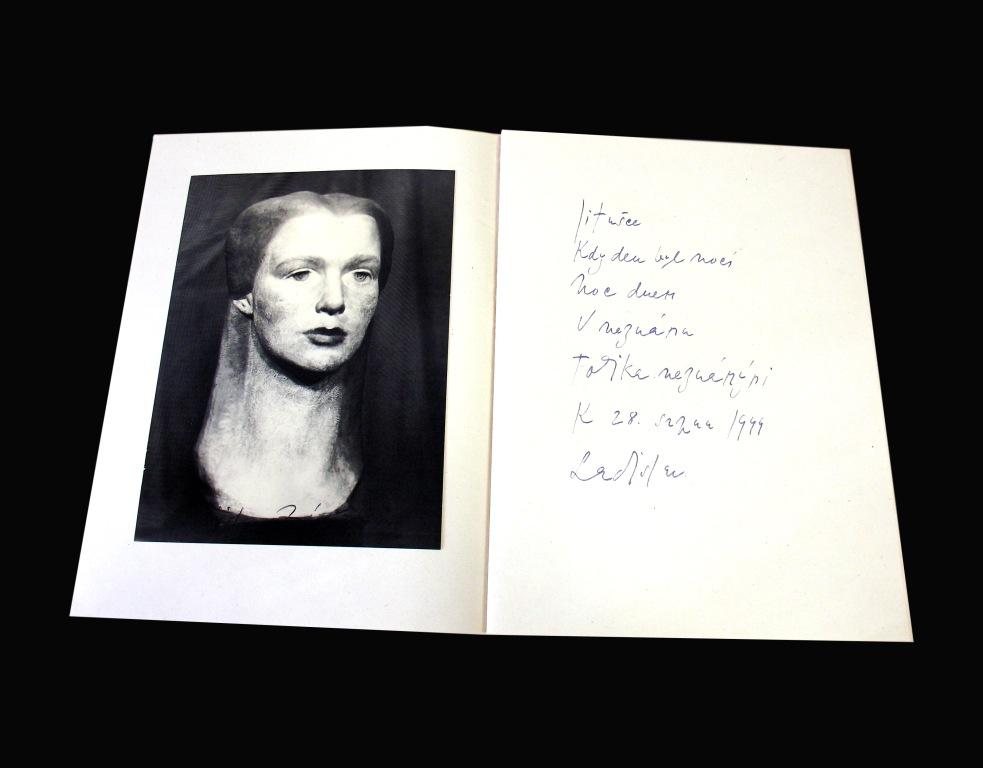 Jitušce
Kdy den byl nocí
Noc dnem
V neznámu
Tolika neznámými
K 28. srpnu 1999
Ladislav